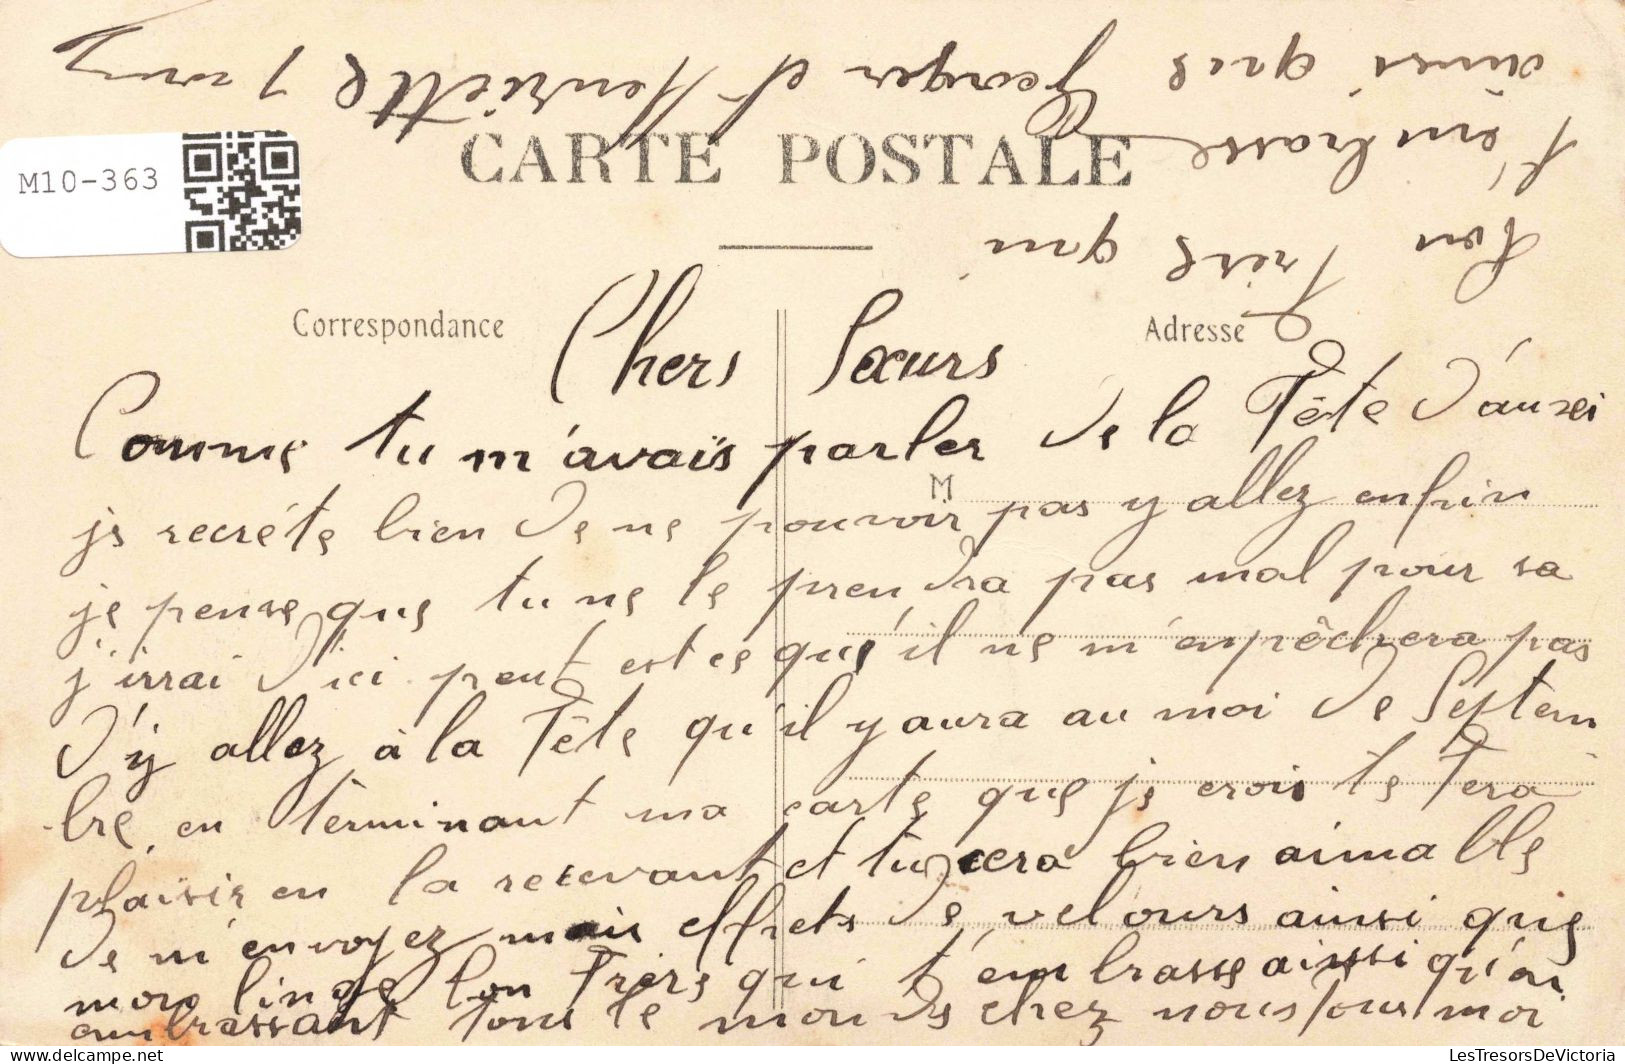 CARTE POSTALE
M10-363
Correspondance
Adresse
M
Chers Sœurs
Comme tu m'avais parler de la Fête d'auxei
je recréte bien de ne pouvoir pas y allez enfin
je pense que tu ne le prendra pas mal pour sa
j'irrai d'ici peut est ce que'il ne m'enpêchera pas
d'y allez à la Fête qu'il y aura au moi de Septem
bre en terminant ma carte que je crois te fera
plaisir en la recevant et tu cera bien aimable
de m'envoyez mais effets de velours ainsi que
mon linge ton Frère qui t'embrasse ainsi qu'en
embrassant tous le monde chez nous pour moi
ton Frère qui
t'embrasse
ainsi que Georges et Henriette
LesTresorsDeVictoria - M10-363
www.LesTresorsDeVictoria